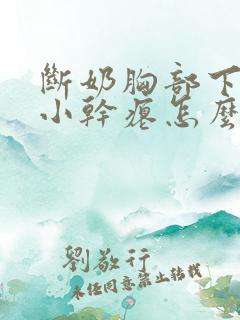 斷奶胸部下
小幹瘪怎麼
劉敬行
未經同意禁止轉載